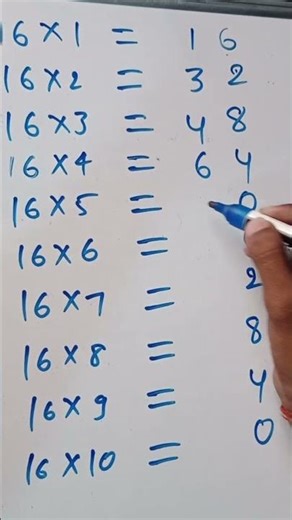 16×1 = 16
16×2 = 32
16×3 = 48
16×4 = 64
16×5 = 0
16×6 =
16×7 = 2
16×8 = 8
16×9 = 4
16×10 = 0